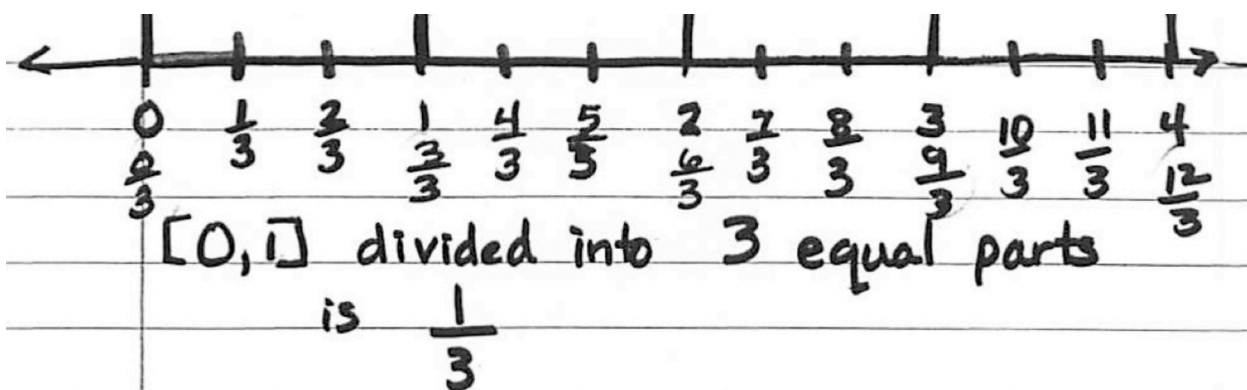 0 1/3 2/3 1 4/3 5/3 2 7/3 8/3 3 10/3 11/3 4
0/3 3/3 6/3 9/3 12/3
[0,1] divided into 3 equal parts
is 1/3